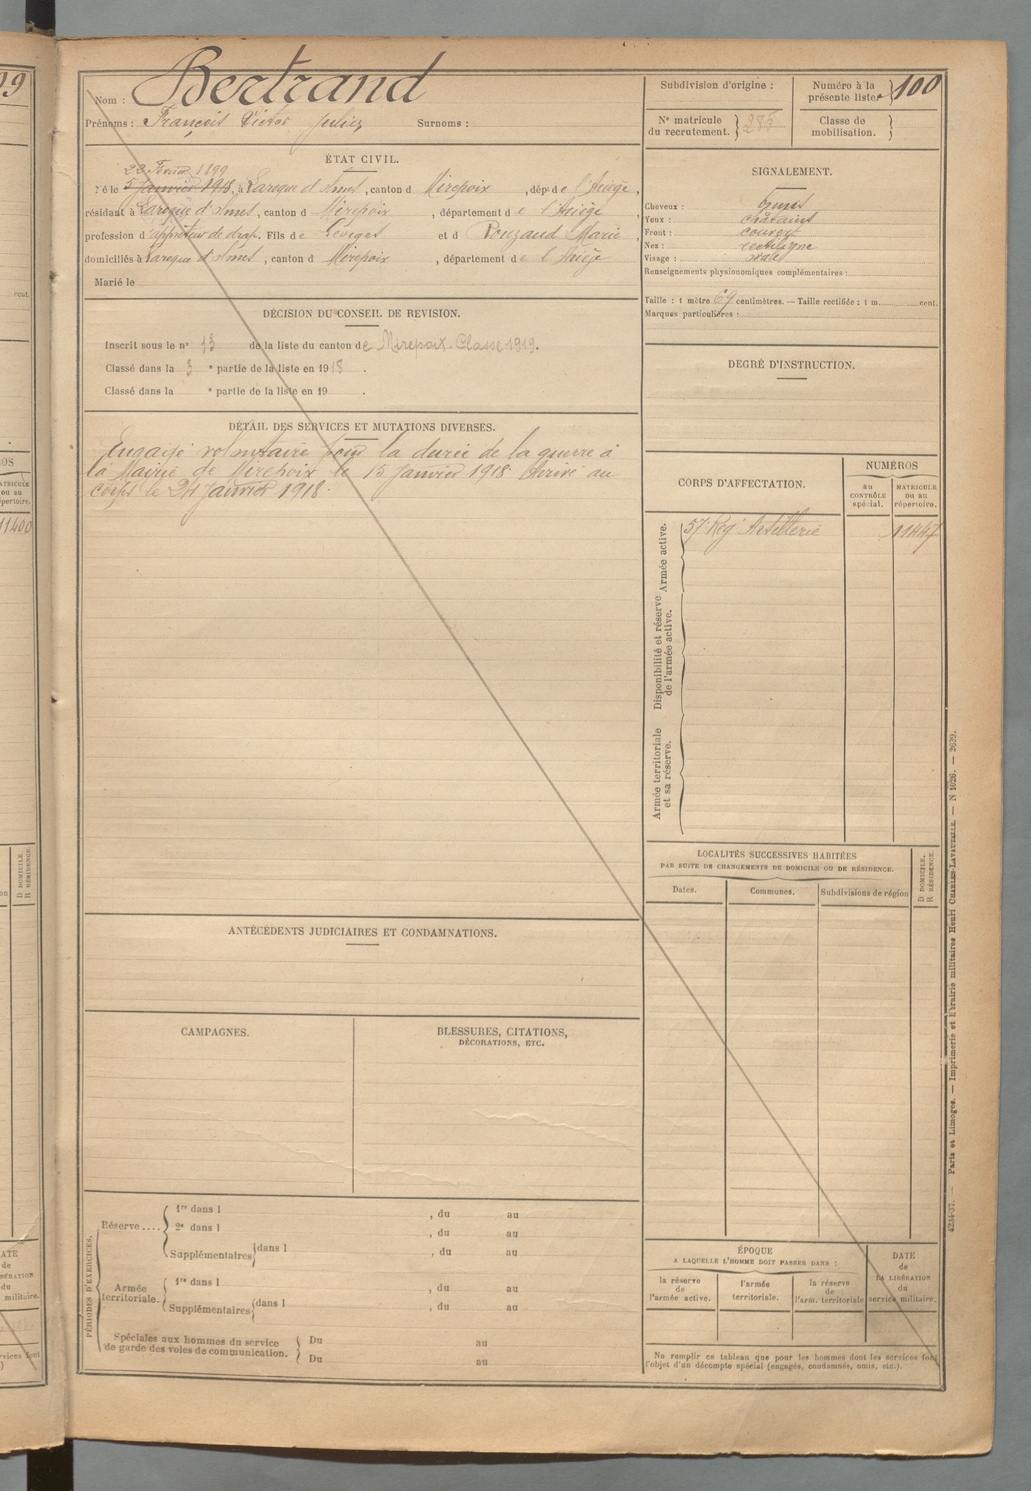 Nom : Bertrand
Prénoms : François Victor Julien Surnoms :
ÉTAT CIVIL.
22 Février 1899
Né le 5 Janvier 1918, à Laroque d'Olmes, canton d Mirepoix, dépt de l'Ariège,
résidant à Laroque d'Olmes, canton d Mirepoix, département de l'Ariège,
profession d'apprêteur de drap. Fils de Georges et d Rouzaud Marie,
domiciliés à Laroque d'Olmes, canton d Mirepoix, département de l'Ariège
Marié le
DÉCISION DU CONSEIL DE REVISION.
Inscrit sous le n° 13 de la liste du canton de Mirepoix. Classe 1919.
Classé dans la 3 e partie de la liste en 1918.
Classé dans la e partie de la liste en 19 .
DÉTAIL DES SERVICES ET MUTATIONS DIVERSES.
Engagé volontaire pour la durée de la guerre à
la Mairie de Mirepoix le 15 Janvier 1918. Arrivé au
corps le 24 Janvier 1918.
ANTÉCÉDENTS JUDICIAIRES ET CONDAMNATIONS.
CAMPAGNES.
BLESSURES, CITATIONS,
DÉCORATIONS, ETC.
PÉRIODES D'EXERCICES.
Réserve....
1re dans l , du au
2e dans l , du au
Supplémentaires dans l , du au
Armée
territoriale.
1re dans l , du au
Supplémentaires dans l , du au
Spéciales aux hommes du service
de garde des voies de communication.
Du au
Du au
Subdivision d'origine :
Numéro à la
présente liste. 100
N° matricule
du recrutement. 285
Classe de
mobilisation.
SIGNALEMENT.
Cheveux : bruns
Yeux : châtains
Front : couvert
Nez : rectiligne
Visage : ovale
Renseignements physionomiques complémentaires :
Taille : 1 mètre 69 centimètres. — Taille rectifiée : 1 m. cent.
Marques particulières :
DEGRÉ D'INSTRUCTION.
CORPS D'AFFECTATION.
NUMÉROS
au
CONTRÔLE
spécial.
MATRICULE
ou au
répertoire.
Armée active.
57e Rég. Artillerie 11447
Disponibilité et réserve
de l'armée active.
Armée territoriale
et sa réserve.
LOCALITÉS SUCCESSIVES HABITÉES
PAR SUITE DE CHANGEMENTS DE DOMICILE OU DE RÉSIDENCE.
Dates.
Communes.
Subdivisions de région
D DOMICILE.
R RÉSIDENCE.
ÉPOQUE
A LAQUELLE L'HOMME DOIT PASSER DANS :
la réserve
de
l'armée active.
l'armée
territoriale.
la réserve
de
l'arm. territoriale
DATE
de
LA LIBÉRATION
du
service militaire.
Ne remplir ce tableau que pour les hommes dont les services font
l'objet d'un décompte spécial (engagés, condamnés, omis, etc.).
4234-37. — Paris et Limoges. — Imprimerie et librairie militaires Henri CHARLES-LAVAUZELLE. — N 1026. — 2639.
99
cent.
MATRICULE
ou au
répertoire.
11400
D DOMICILE.
R RÉSIDENCE.